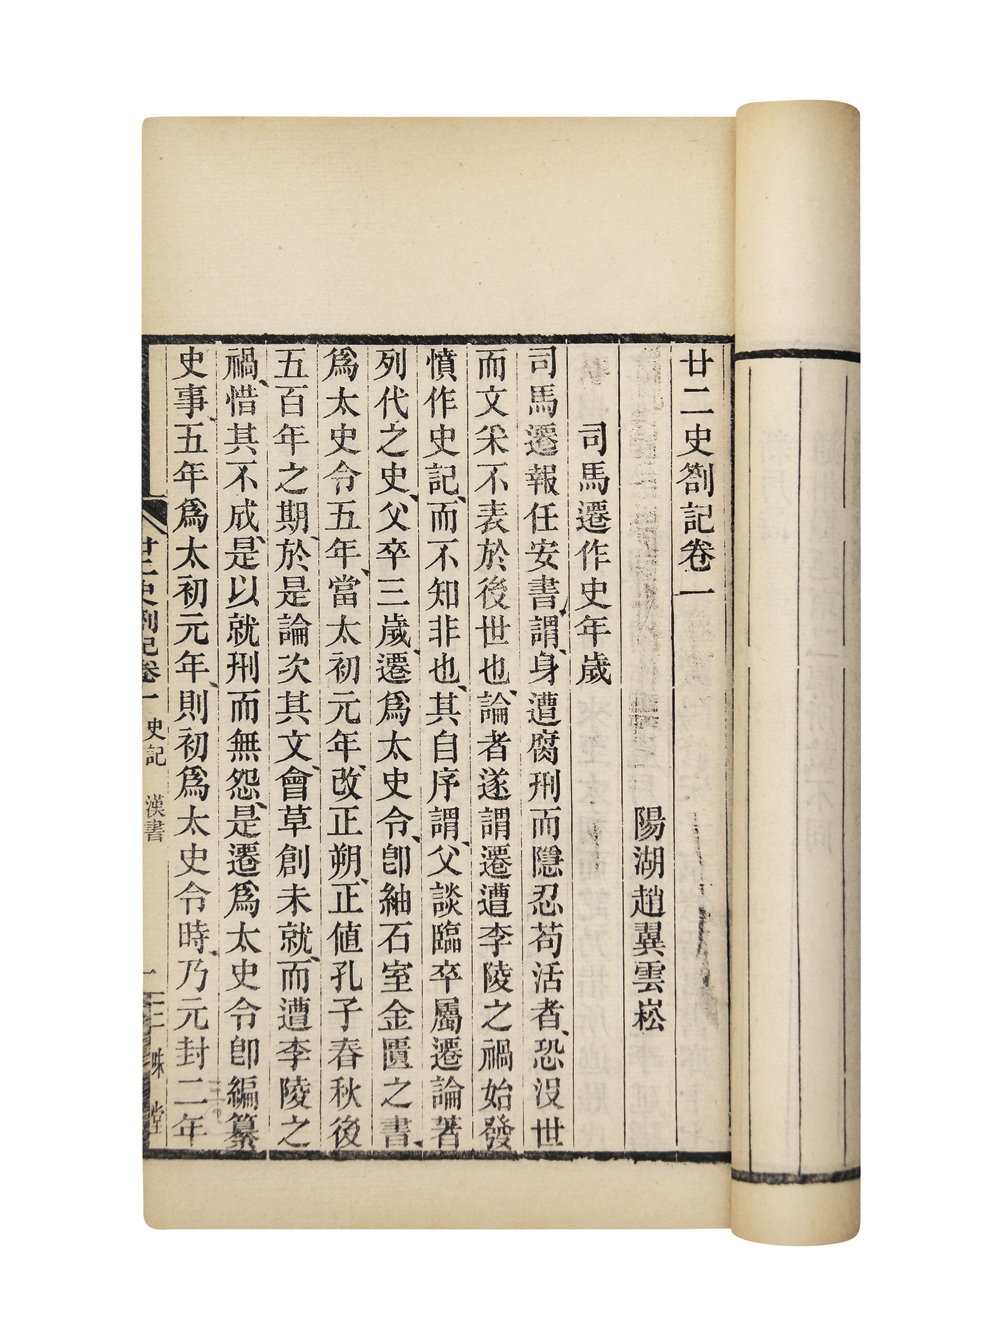 廿二史劄記卷一
陽湖趙翼雲崧
司馬遷作史年歲
司馬遷報任安書、謂身遭腐刑而隱忍苟活者、恐沒世
而文采不表於後世也、論者遂謂遷遭李陵之禍始發
憤作史記、而不知非也、其自序謂、父談臨卒屬遷論著
列代之史、父卒三歲、遷爲太史令、卽紬石室金匱之書、
爲太史令五年、當太初元年、改正朔、正値孔子春秋後
五百年之期、於是論次其文、會草創未就、而遭李陵之
禍、惜其不成、是以就刑而無怨、是遷爲太史令卽編纂
史事、五年爲太初元年、則初爲太史令時、乃元封二年
廿二史劄記卷一 史記 漢書 一